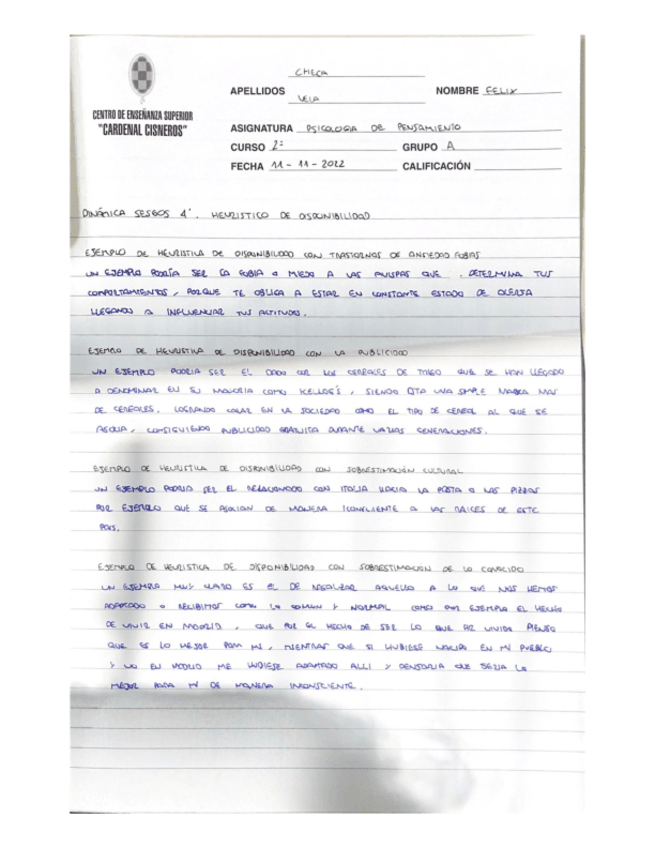 CHECA
APELLIDOS VELA NOMBRE FELIX
CENTRO DE ENSEÑANZA SUPERIOR
"CARDENAL CISNEROS"
ASIGNATURA PSICOLOGIA DE PENSAMIENTO
CURSO 2º GRUPO A
FECHA 11-11-2022 CALIFICACIÓN
DINÁMICA SESGOS 4'. HEURISTICO DE DISPONIBILIDAD
EJEMPLO DE HEURISTICA DE DISPONIBILIDAD CON TRASTORNOS DE ANSIEDAD FOBIAS
UN EJEMPLO PODRÍA SER LA FOBIA O MIEDO A LAS AVISPAS QUE . DETERMINA TUS
COMPORTAMIENTOS, PORQUE TE OBLIGA A ESTAR EN CONSTANTE ESTADO DE ALERTA
LLEGANDO A INFLUENCIAR TUS ACTITUDES.
EJEMPLO DE HEURISTICA DE DISPONIBILIDAD CON LA PUBLICIDAD
UN EJEMPLO PODRIA SER EL DADO CON LOS CEREALES DE TRIGO QUE SE HAN LLEGADO
A DENOMINAR EN SU MAYORIA COMO KELLOG'S, SIENDO ESTA UNA SIMPLE MARCA MAS
DE CEREALES. LOGRANDO CALAR EN LA SOCIEDAD COMO EL TIPO DE CEREAL AL QUE SE
ASOCIA, CONSIGUIENDO PUBLICIDAD GRATUITA DURANTE VARIAS GENERACIONES.
EJEMPLO DE HEURISTICA DE DISPONIBILIDAD CON SOBRESTIMACIÓN CULTURAL
UN EJEMPLO PODRIA SER EL RELACIONADO CON ITALIA HACIA LA PASTA O LAS PIZZAS
POR EJEMPLO QUE SE ASOCIAN DE MANERA ICONSCIENTE A LAS RAICES DE ESTE
PAIS.
EJEMPLO DE HEURISTICA DE DISPONIBILIDAD CON SOBRESTIMACION DE LO CONOCIDO
UN EJEMPLO MUY CLARO ES EL DE AQUELLO A LO QUE NOS HEMOS
ADAPTADO O RECIBIMOS COMO LO COMUN Y NORMAL COMO POR EJEMPLO EL HECHO
DE VIVIR EN MADRID, QUE POR EL HECHO DE SER LO QUE HE VIVIDO PIENSO
QUE ES LO MEJOR PARA MI, MIENTRAS QUE SI HUBIESE NACIDO EN MI PUEBLO
Y NO EN MADRID ME HUBIESE ADAPTADO ALLI Y PENSARIA QUE SERIA LO
MEJOR PARA MÍ DE MANERA INCONSCIENTE.